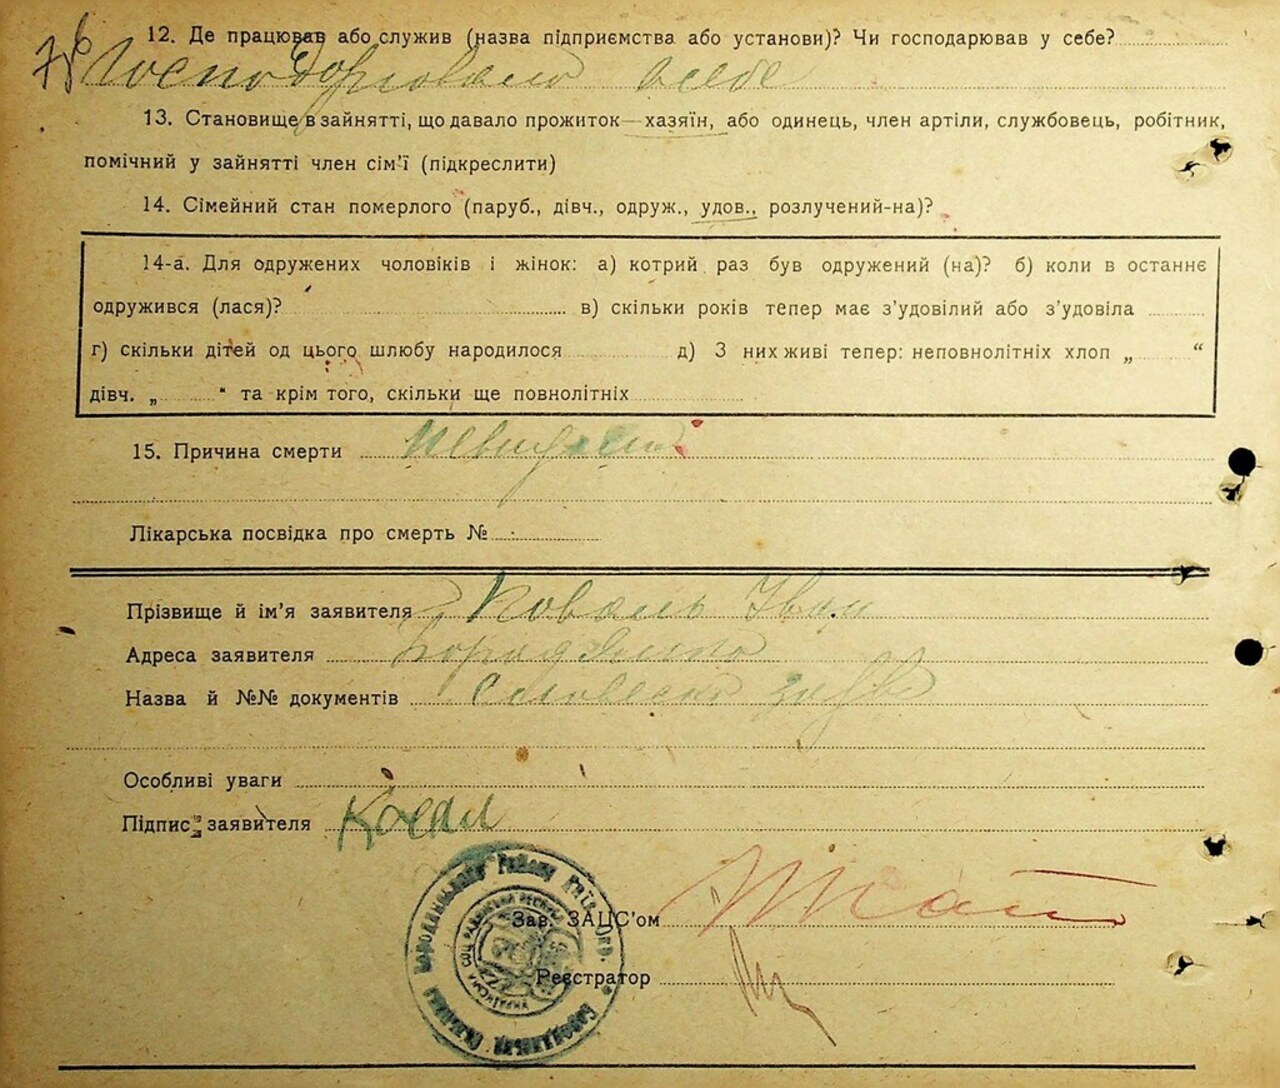 12. Де працював або служив (назва підприємства або установи)? Чи господарював у себе?
Господорювало всебе
13. Становище в зайнятті, що давало прожиток—хазяїн, або одинець, член артіли, службовець, робітник,
помічний у зайнятті член сім'ї (підкреслити)
14. Сімейний стан померлого (паруб., дівч., одруж., удов., розлучений-на)?
14-а. Для одружених чоловіків і жінок: а) котрий раз був одружений (на)? б) коли в останнє
одружився (лася)? в) скільки років тепер має з'удовілий або з'удовіла
г) скільки дітей од цього шлюбу народилося д) З них живі тепер: неповнолітніх хлоп „ “
дівч. „ “ та крім того, скільки ще повнолітніх
15. Причина смерти
Лікарська посвідка про смерть №
Прізвище й ім'я заявителя Коваль Іван
Адреса заявителя Бородянка
Назва й №№ документів Словесна заява
Особливі уваги
Підпис заявителя
Зав. ЗАЦС'ом
Реєстратор